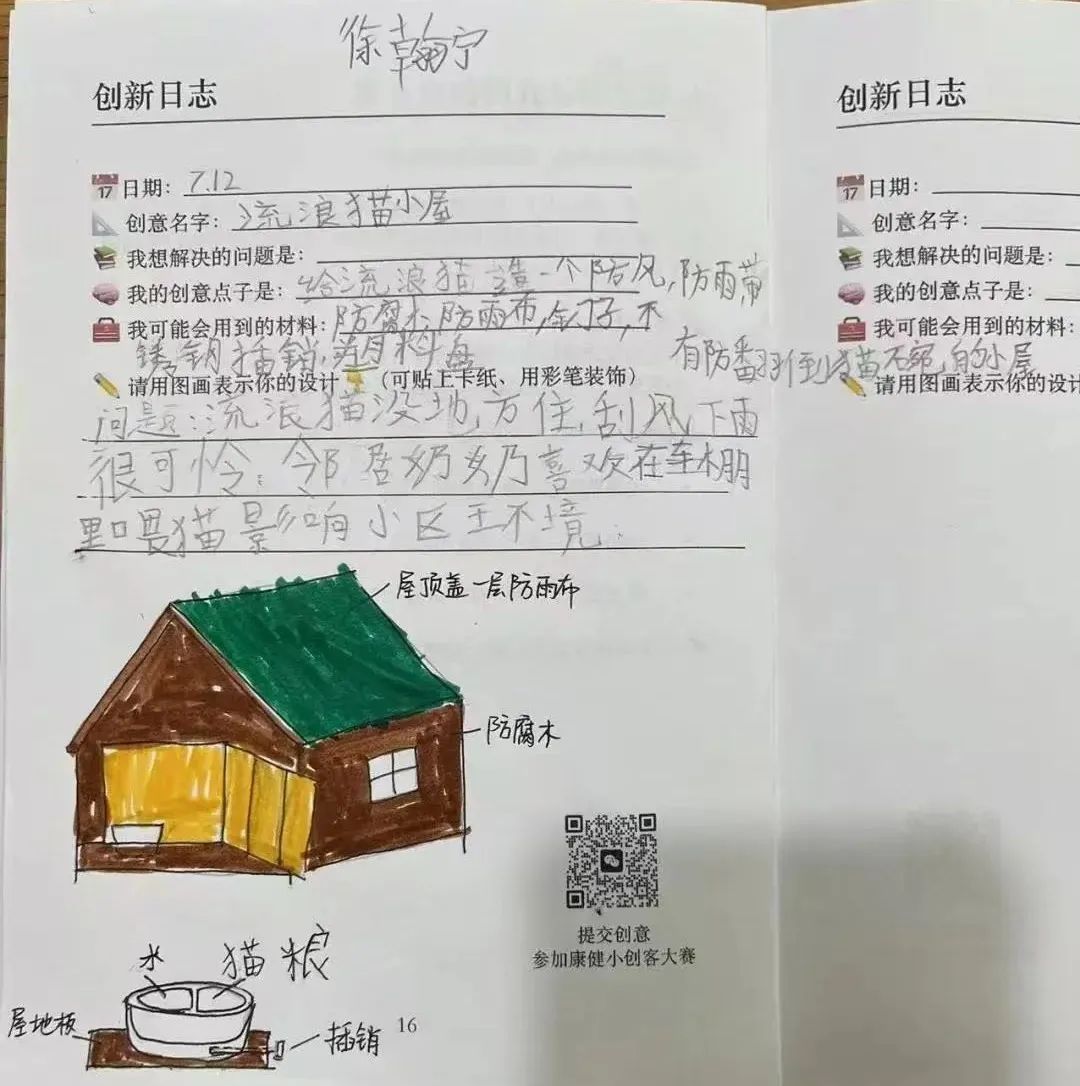 徐翰宁
创新日志
17 日期：7.12
创意名字：流浪猫小屋
我想解决的问题是：
我的创意点子是：给流浪猫造一个防风，防雨带
有防翻到猫碗的小屋
我可能会用到的材料：防腐木，防雨布，钉子，不
锈钢插销，塑料盘
请用图画表示你的设计（可贴上卡纸、用彩笔装饰）
问题：流浪猫没地方住，刮风下雨
很可怜；邻居奶奶喜欢在车棚
里喂猫影响小区环境。
屋顶盖一层防雨布
防腐木
提交创意
参加康健小创客大赛
水
猫粮
屋地板
插销
16
创新日志
17 日期：
创意名字：
我想解决的问题是：
我的创意点子是：
我可能会用到的材料：
请用图画表示你的设计